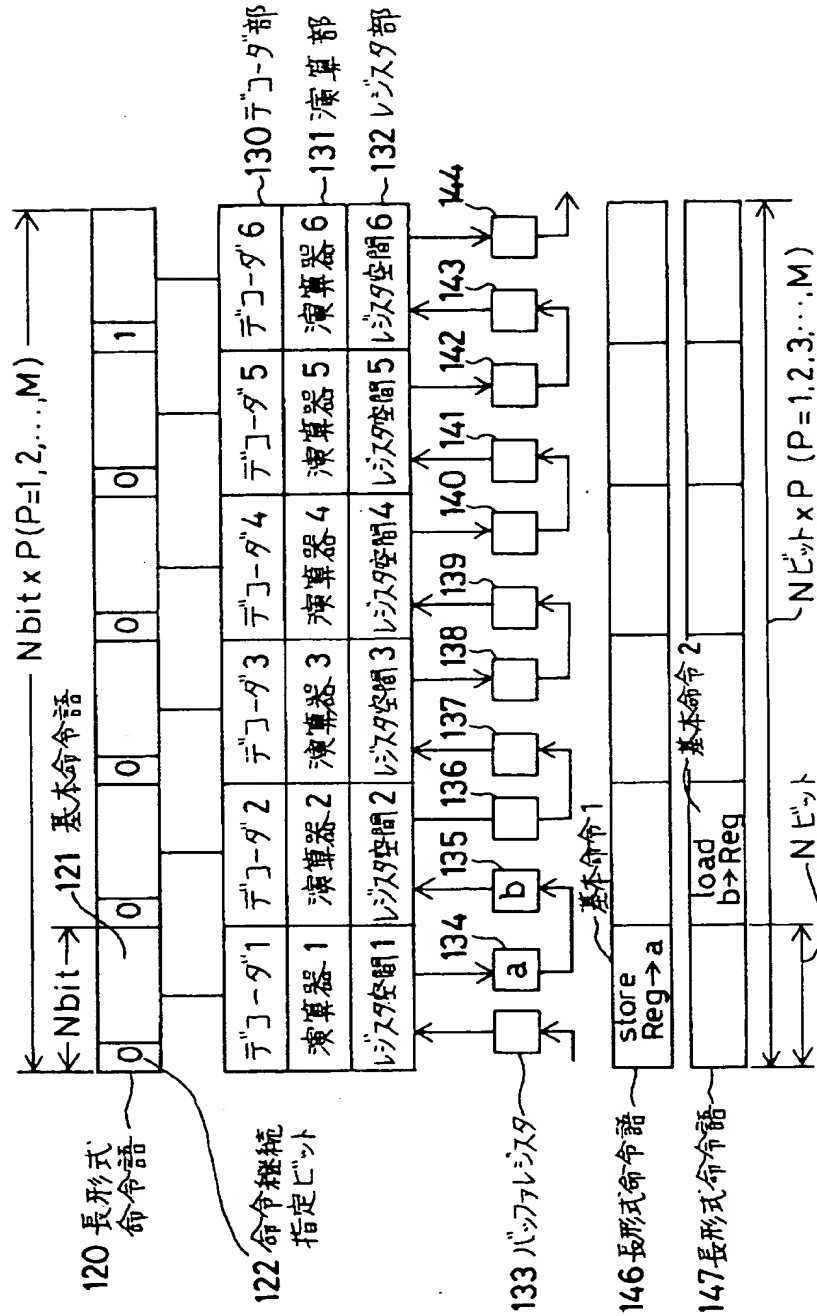 Nbit x P(P=1, 2, ..., M)
Nbit
121 基本命令語
120 長形式
命令語
0
0
0
0
0
1
122 命令継続
指定ビット
デコーダ1
デコーダ2
デコーダ3
デコーダ4
デコーダ5
デコーダ6
130 デコーダ部
演算器1
演算器2
演算器3
演算器4
演算器5
演算器6
131 演算部
レジスタ空間1
レジスタ空間2
レジスタ空間3
レジスタ空間4
レジスタ空間5
レジスタ空間6
132 レジスタ部
133 バッファレジスタ
134
135
136
137
138
139
140
141
142
143
144
a
b
基本命令1
146 長形式命令語
store
Reg→a
基本命令2
147 長形式命令語
load
b→Reg
Nビット
Nビット x P (P = 1, 2, 3, ..., M)